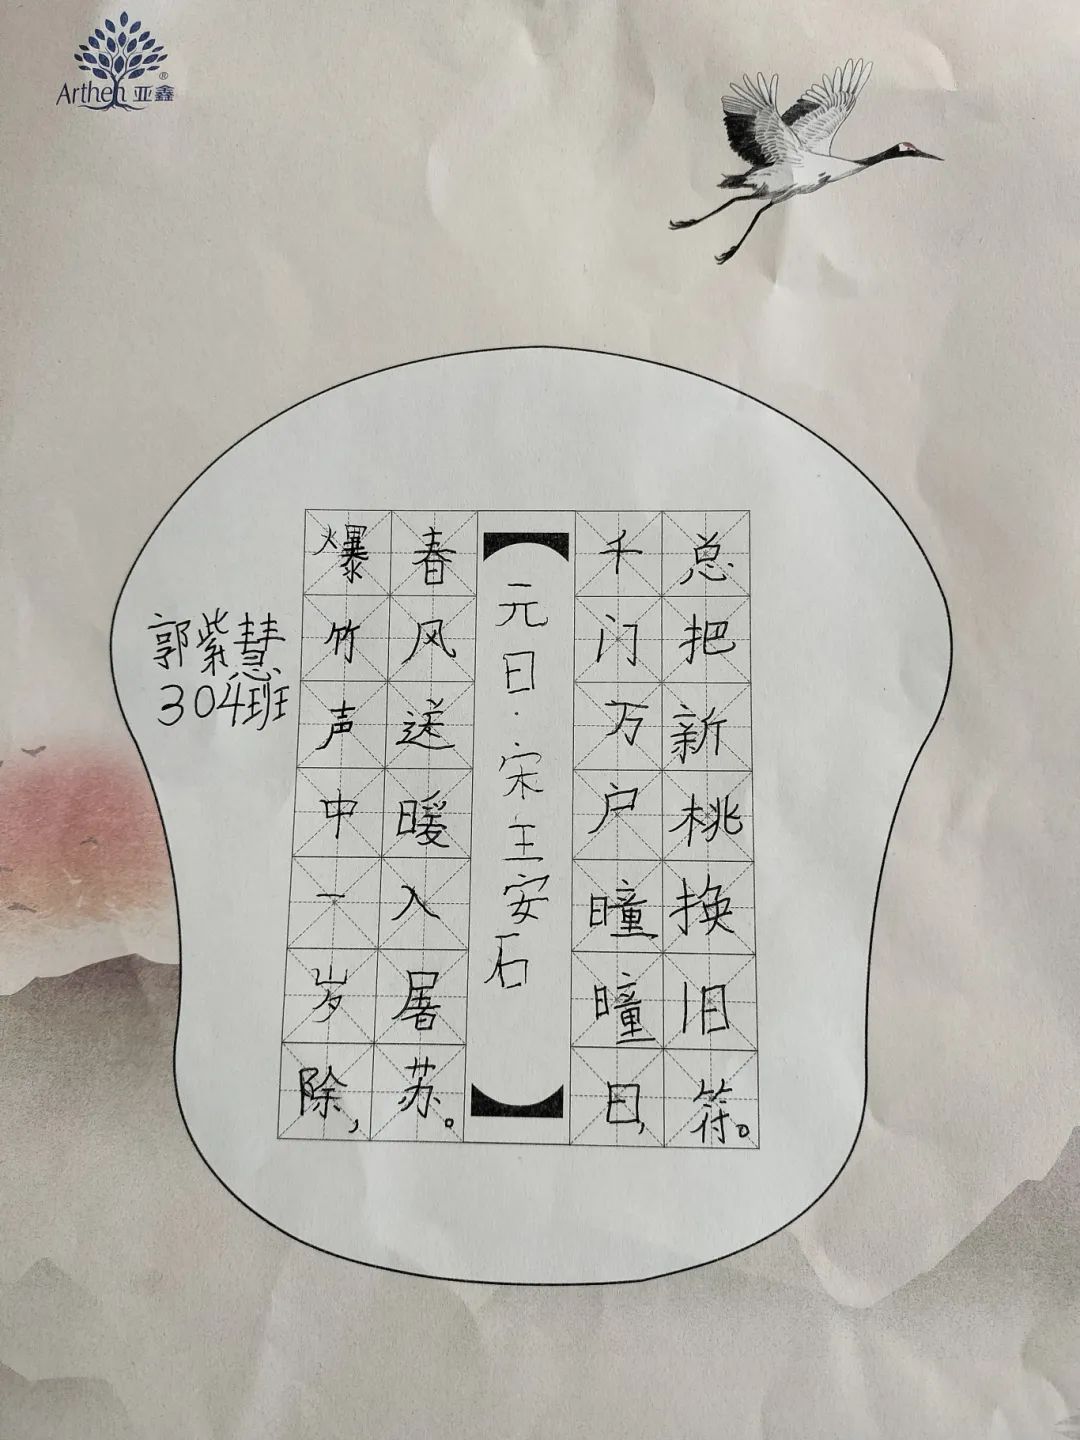 Arthen 亚鑫®
爆竹声中一岁除，
春风送暖入屠苏。
元日·宋王安石
千门万户曈曈日，
总把新桃换旧符。
郭紫慧
304班